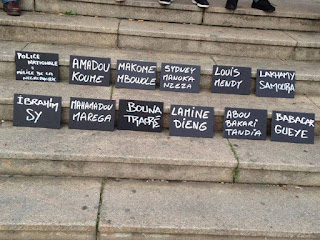 POLICE
NATIONALE
=
MILICE DE LA
AMADOU
KOUME
MAKOME
MBOWOLE
SYDNEY
MANOKA
NZEZA
LOUIS
MENDY
LAKHAMY
SAMOURA
IBRAHIM
SY
MAHAMADOU
MAREGA
BOUNA
TRAORÉ
LAMINE
DIENG
ABOU
BAKARI
TANDIA
BABACAR
GUEYE